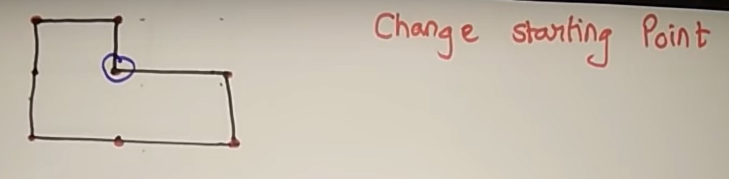 Change starting Point